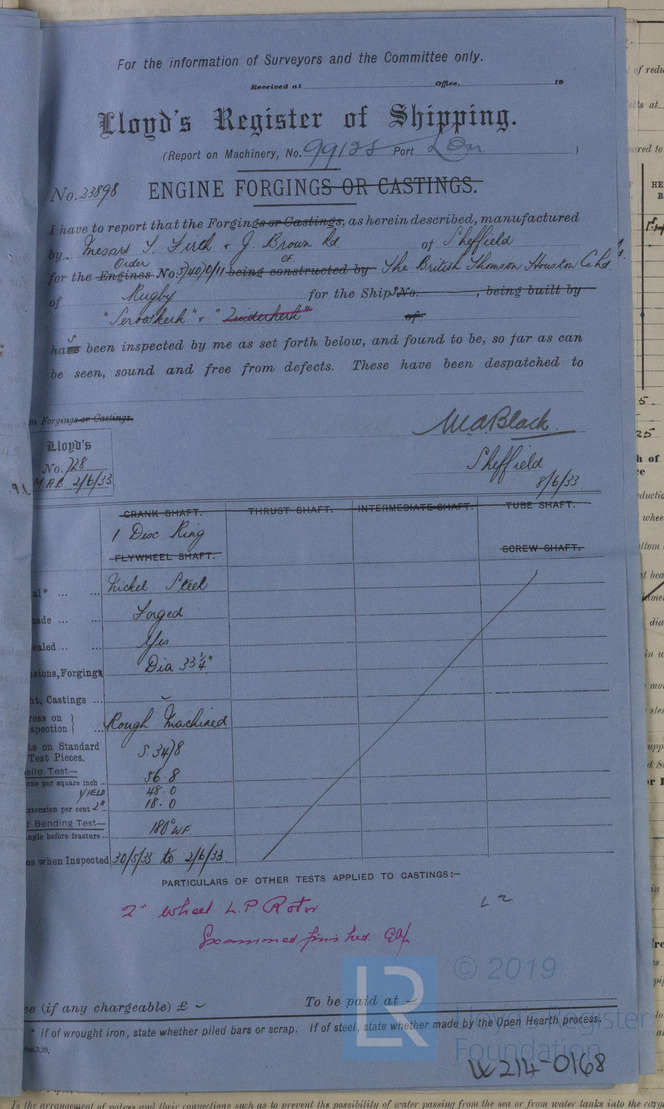 For the information of Surveyors and the Committee only.
Received at Office, 19
Lloyd's Register of Shipping.
(Report on Machinery, No. 99138 Port Lon )
No. 23898 ENGINE FORGINGS OR CASTINGS.
I have to report that the Forgings or Castings, as herein described, manufactured
by Messrs T. Firth & J. Brown Ld of Sheffield
Order of
for the Engines No. 7/4070/11 being constructed by The British Thomson Houston Co Ld
of Rugby for the Ship No. , being built by
"Serooskerk" & "Zuiderkerk" of
have been inspected by me as set forth below, and found to be, so far as can
be seen, sound and free from defects. These have been despatched to
on Forgings or Castings.
W A Black
Lloyd's
No. 728
M.A.B 2/6/33
Sheffield
8/6/33
CRANK SHAFT. THRUST SHAFT. INTERMEDIATE SHAFT. TUBE SHAFT.
1 Disc Ring
FLYWHEEL SHAFT. SCREW SHAFT.
al* ... ... Nickel Steel
ade ... ... Forged
ealed ... ... Yes
sions, Forgings Dia 33¼"
ht, Castings ...
ress on
spection Rough Machined
ts on Standard
Test Pieces. S 3418
sile Test—
ons per square inch ... 56.8
YIELD 48.0
xtension per cent 2" ... 18.0
d Bending Test—
ngle before fracture ... 180° W.F.
es when Inspected 30/5/33 to 2/6/33
PARTICULARS OF OTHER TESTS APPLIED TO CASTINGS:—
2" wheel L.P. Rotor
Examined finished
e (if any chargeable) £ To be paid at
* If of wrought iron, state whether piled bars or scrap. If of steel, state whether made by the Open Hearth process.
LR
© 2019
Lloyd's Register
Foundation
W214-0168
Is the arrangement of valves and their connections such as to prevent the possibility of water passing from the sea or from water tanks into the cargo